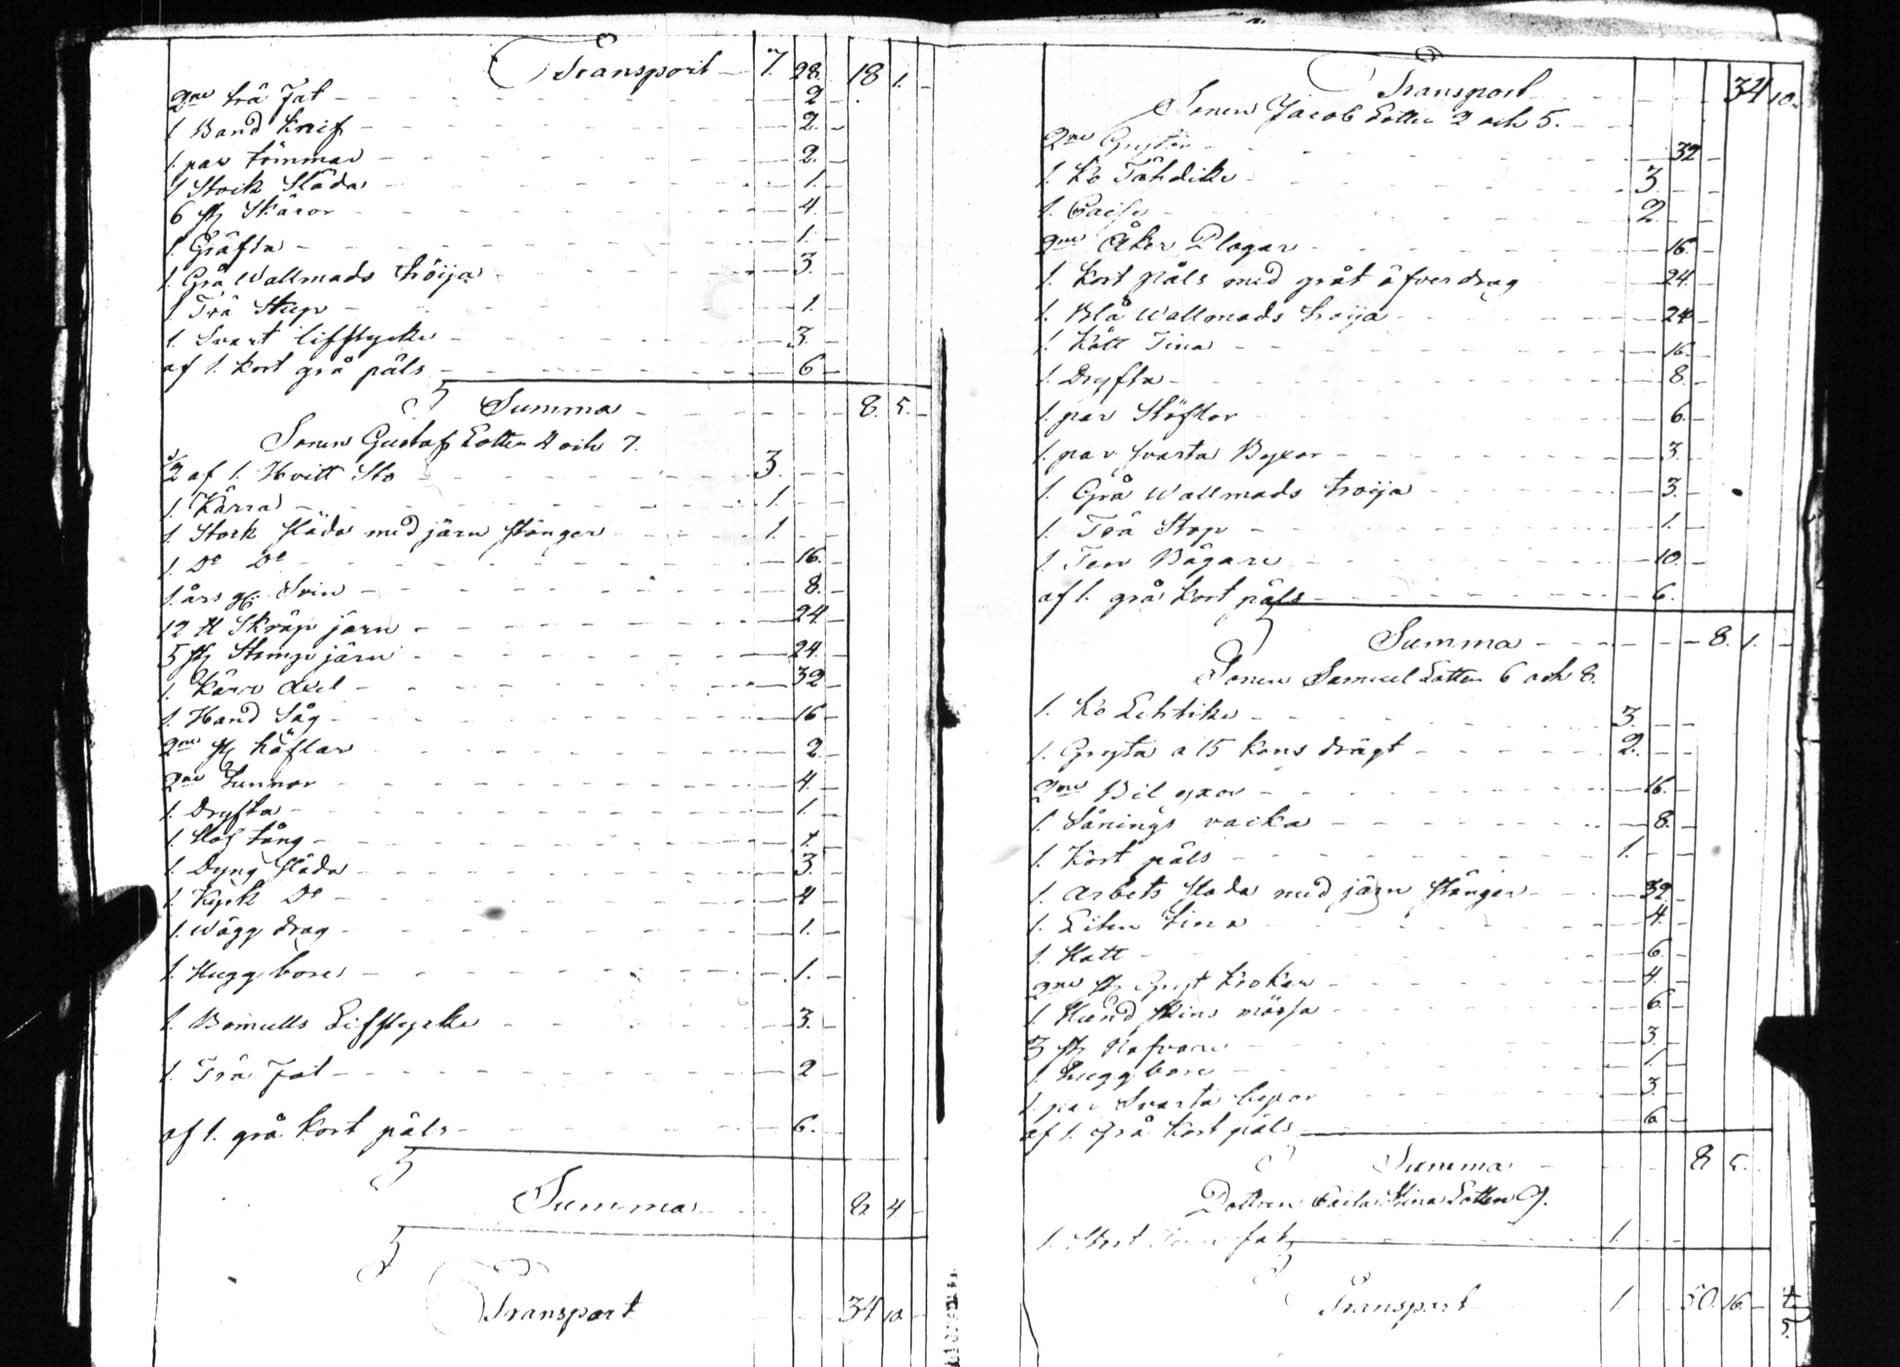 Transport 7. 28. 18 1.
2ne trä Fat 2
1 Band knif 2.
1. par tömmar 2.
1 Stock Släda 1.
6 st Skäror 4.
1. Gräfta 1.
1. Grå Wallmads tröija 3.
1 Trä Stop 1.
1. Svart lifstycke 3.
af 1. kort grå päls 6
Summa 8. 5.
Sonen Gustaf Lotten 4 och 7.
1/2 af 1. Hvitt Sto 3.
1. Kärra 1.
1 Stock släda med järn stänger 1.
1. Do Do 16.
1. års g: Svin 8.
12 ℔ Skräp järn 24
5 st Stämp järn 24.
1. Kärr Axel 32
1. Hand Såg 16
2ne st Häflar 2
2ne Tunnor 4.
1. Dryfta 1.
1 Hof tång 1.
1. Dyng släda 3.
1. Kyrk Do 4
1. Wägg drag 1.
1. Hugg bore 1.
1. Bomulls Lifstycke 3.
1. Trä Fat 2
af 1. grå kort päls 6.
Summa 8 4
Transport 34 10
Transport 34 10.
Sonen Jacob Lotten 2 och 5.
2ne Grytor 32
1. ko Tähdike 3
1. 2.
2ne Åker Plogar 16
1. kort päls med gråt öfverdrag 24
1. Blå Wallmads troija 24
1. Kött Tina 16.
1. Dryfta 8.
1. par Stöflor 6.
1. par svarta Byxor 3.
1. Grå Wallmads troija 3.
1. Trä Stop 1.
1. Ten Bägare 10.
af 1. grå kort päls 6.
Summa 8. 1.
Sonen Samuel Lotten 6 och 8.
1. ko Lehtike 3.
1. Gryta a 15 kans drägt 2.
2ne Bil yxor 16.
1. Sånings vacka 8.
1. Kort päls 1.
1. Arbets släda med järn stänger 32
1. tina 4.
1. Hatt 6
2ne st Gryt krokar 4.
1. Hund skins mössa 6
3 st Nafvare 3.
1. hugg bore 1.
1. par Svarta bexor 3
af 1. Grå kort päls 6
Summa 8 5.
Dottren Caisa Stina Lotten 9.
1. Stort fat 1.
Transport 1. 50. 16.